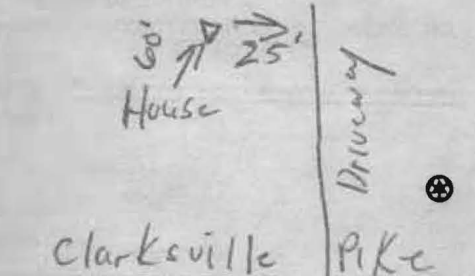 60' 25'
House
Driveway
Clarksville Pike